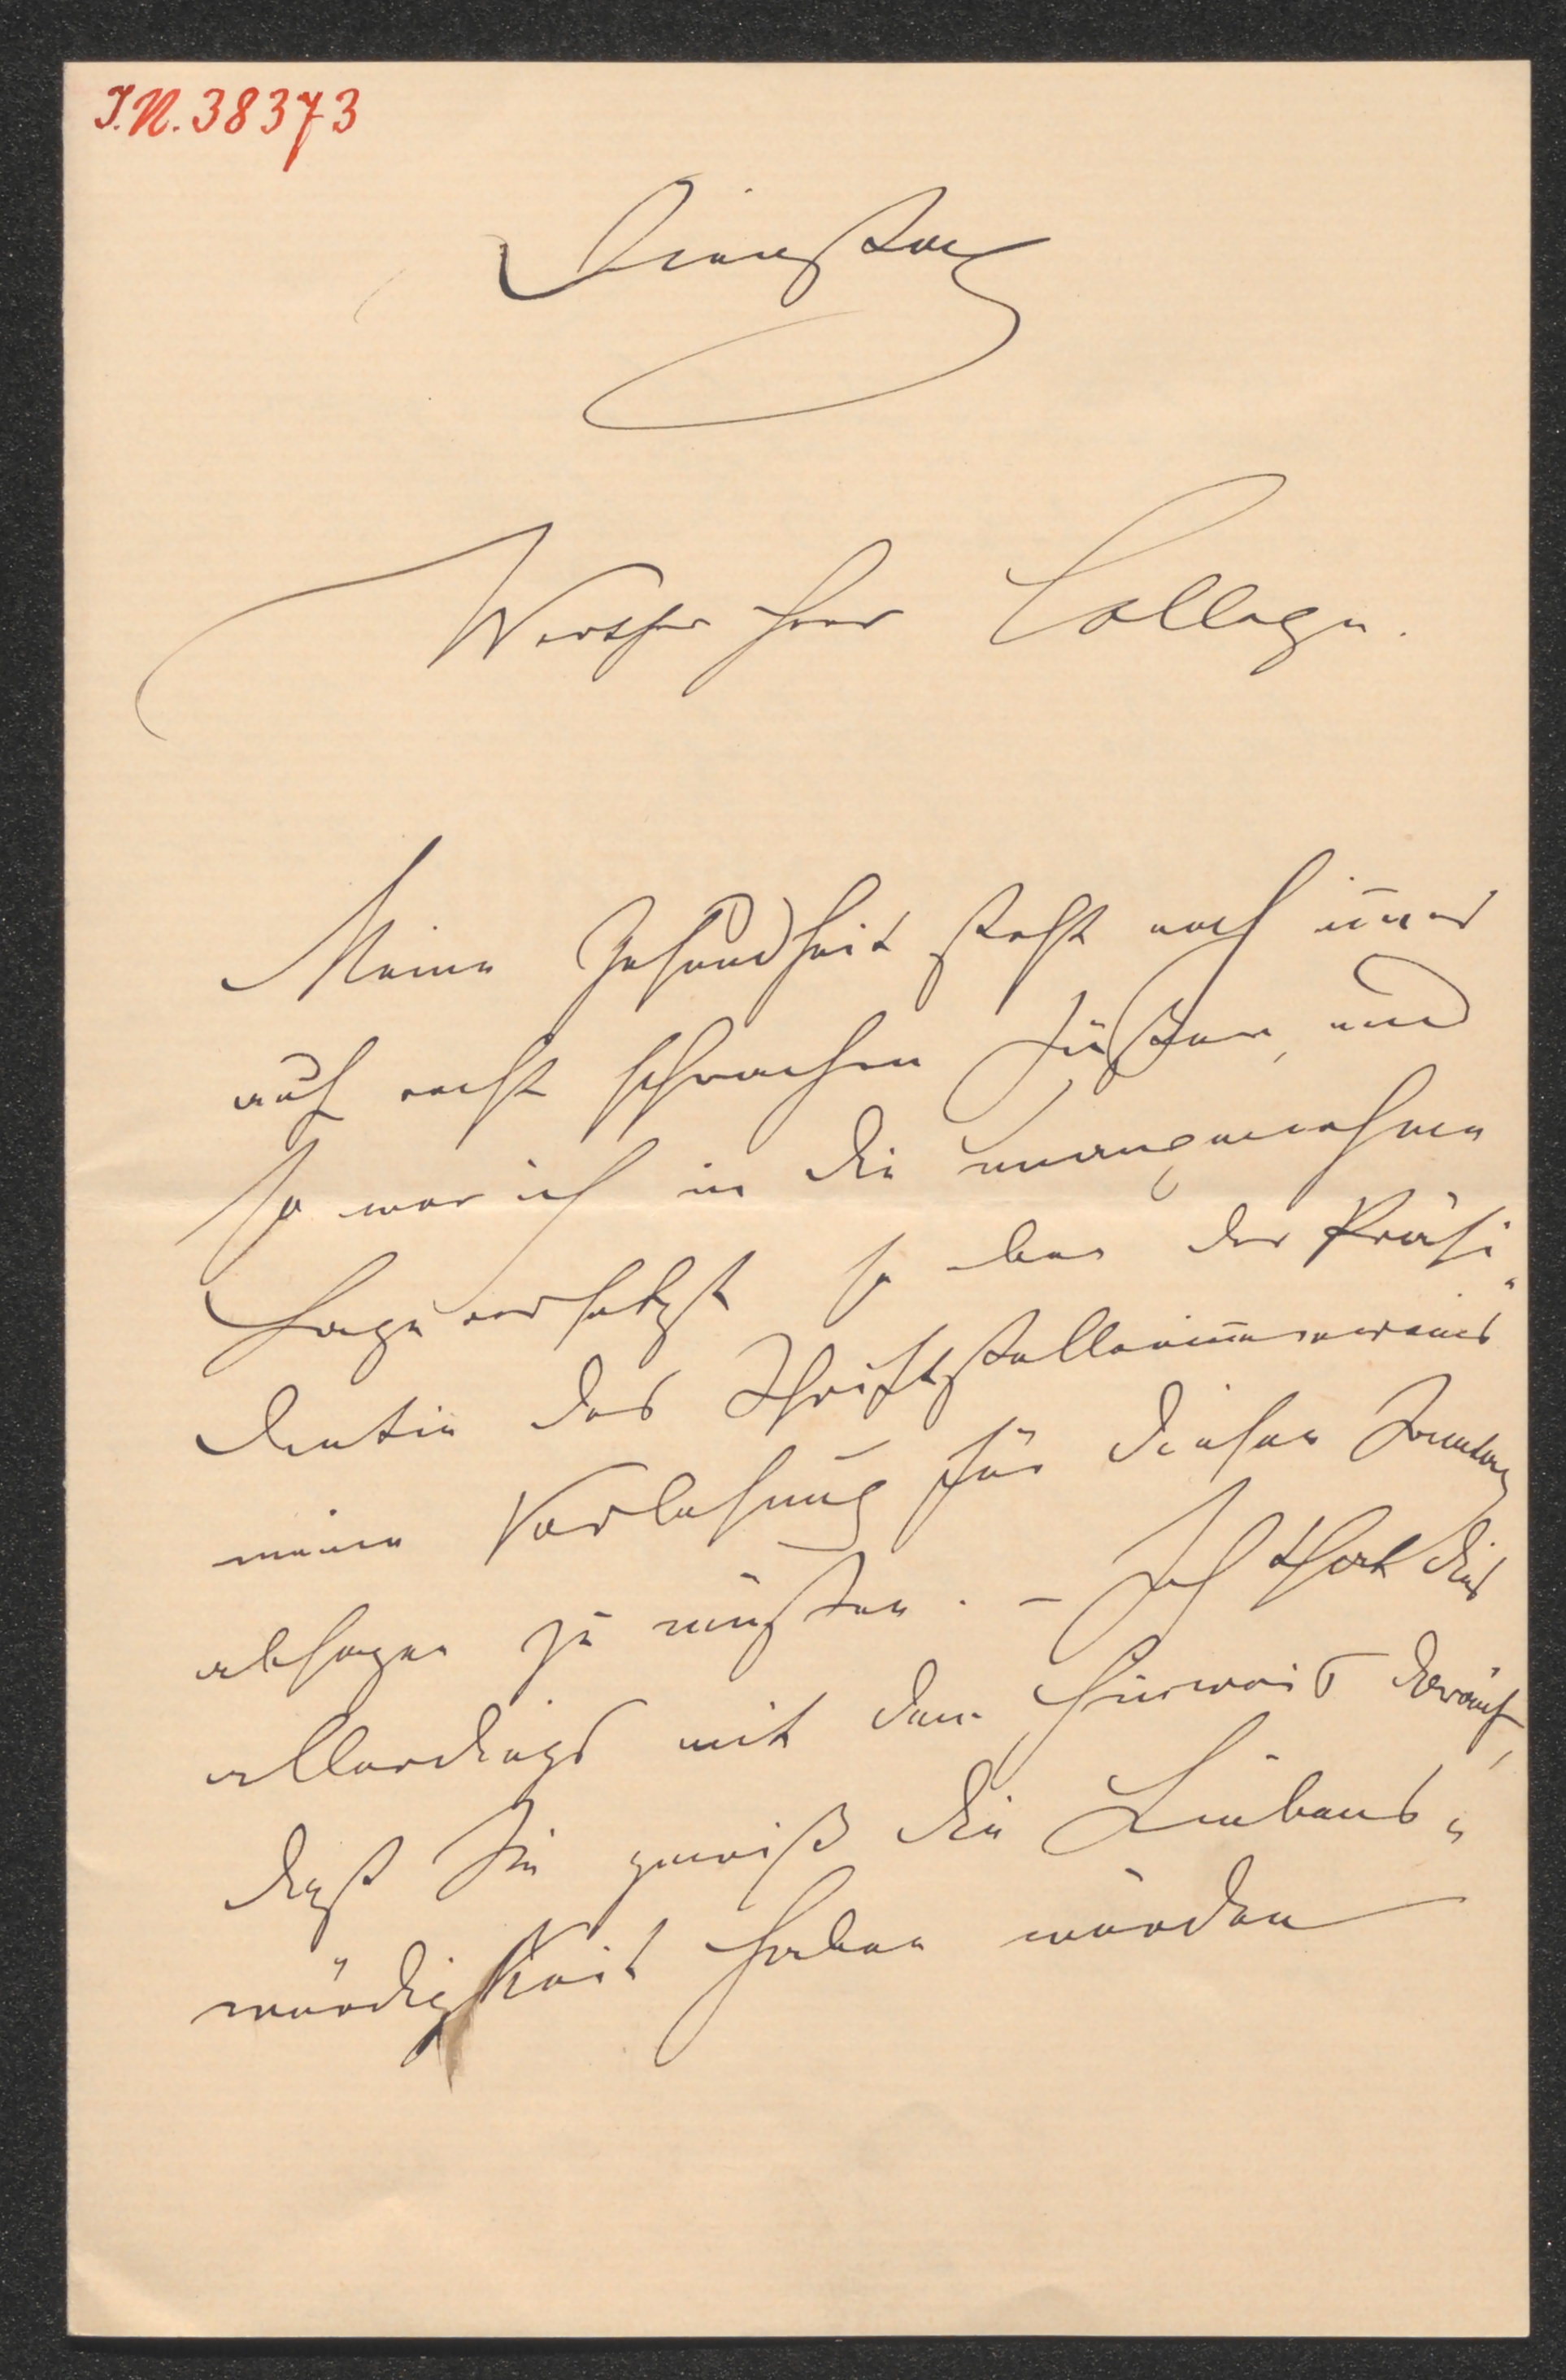 I.N. 38373
Dienstag
Werther Herr College.
Meine Gesundheit steht noch im̅er
auf recht schwachen Füßen, und
so war ich in die unangenehme
Lage versetzt so der Präsi„
dentin des Schriftstellerin̅envereins
meine Vorlesung für diesen Sonntag
absagen zu müßen. – Ich that dies
allerdings mit dem Hinweis darauf,
daß Sie gewiß die Liebens„
würdigkeit haben würden